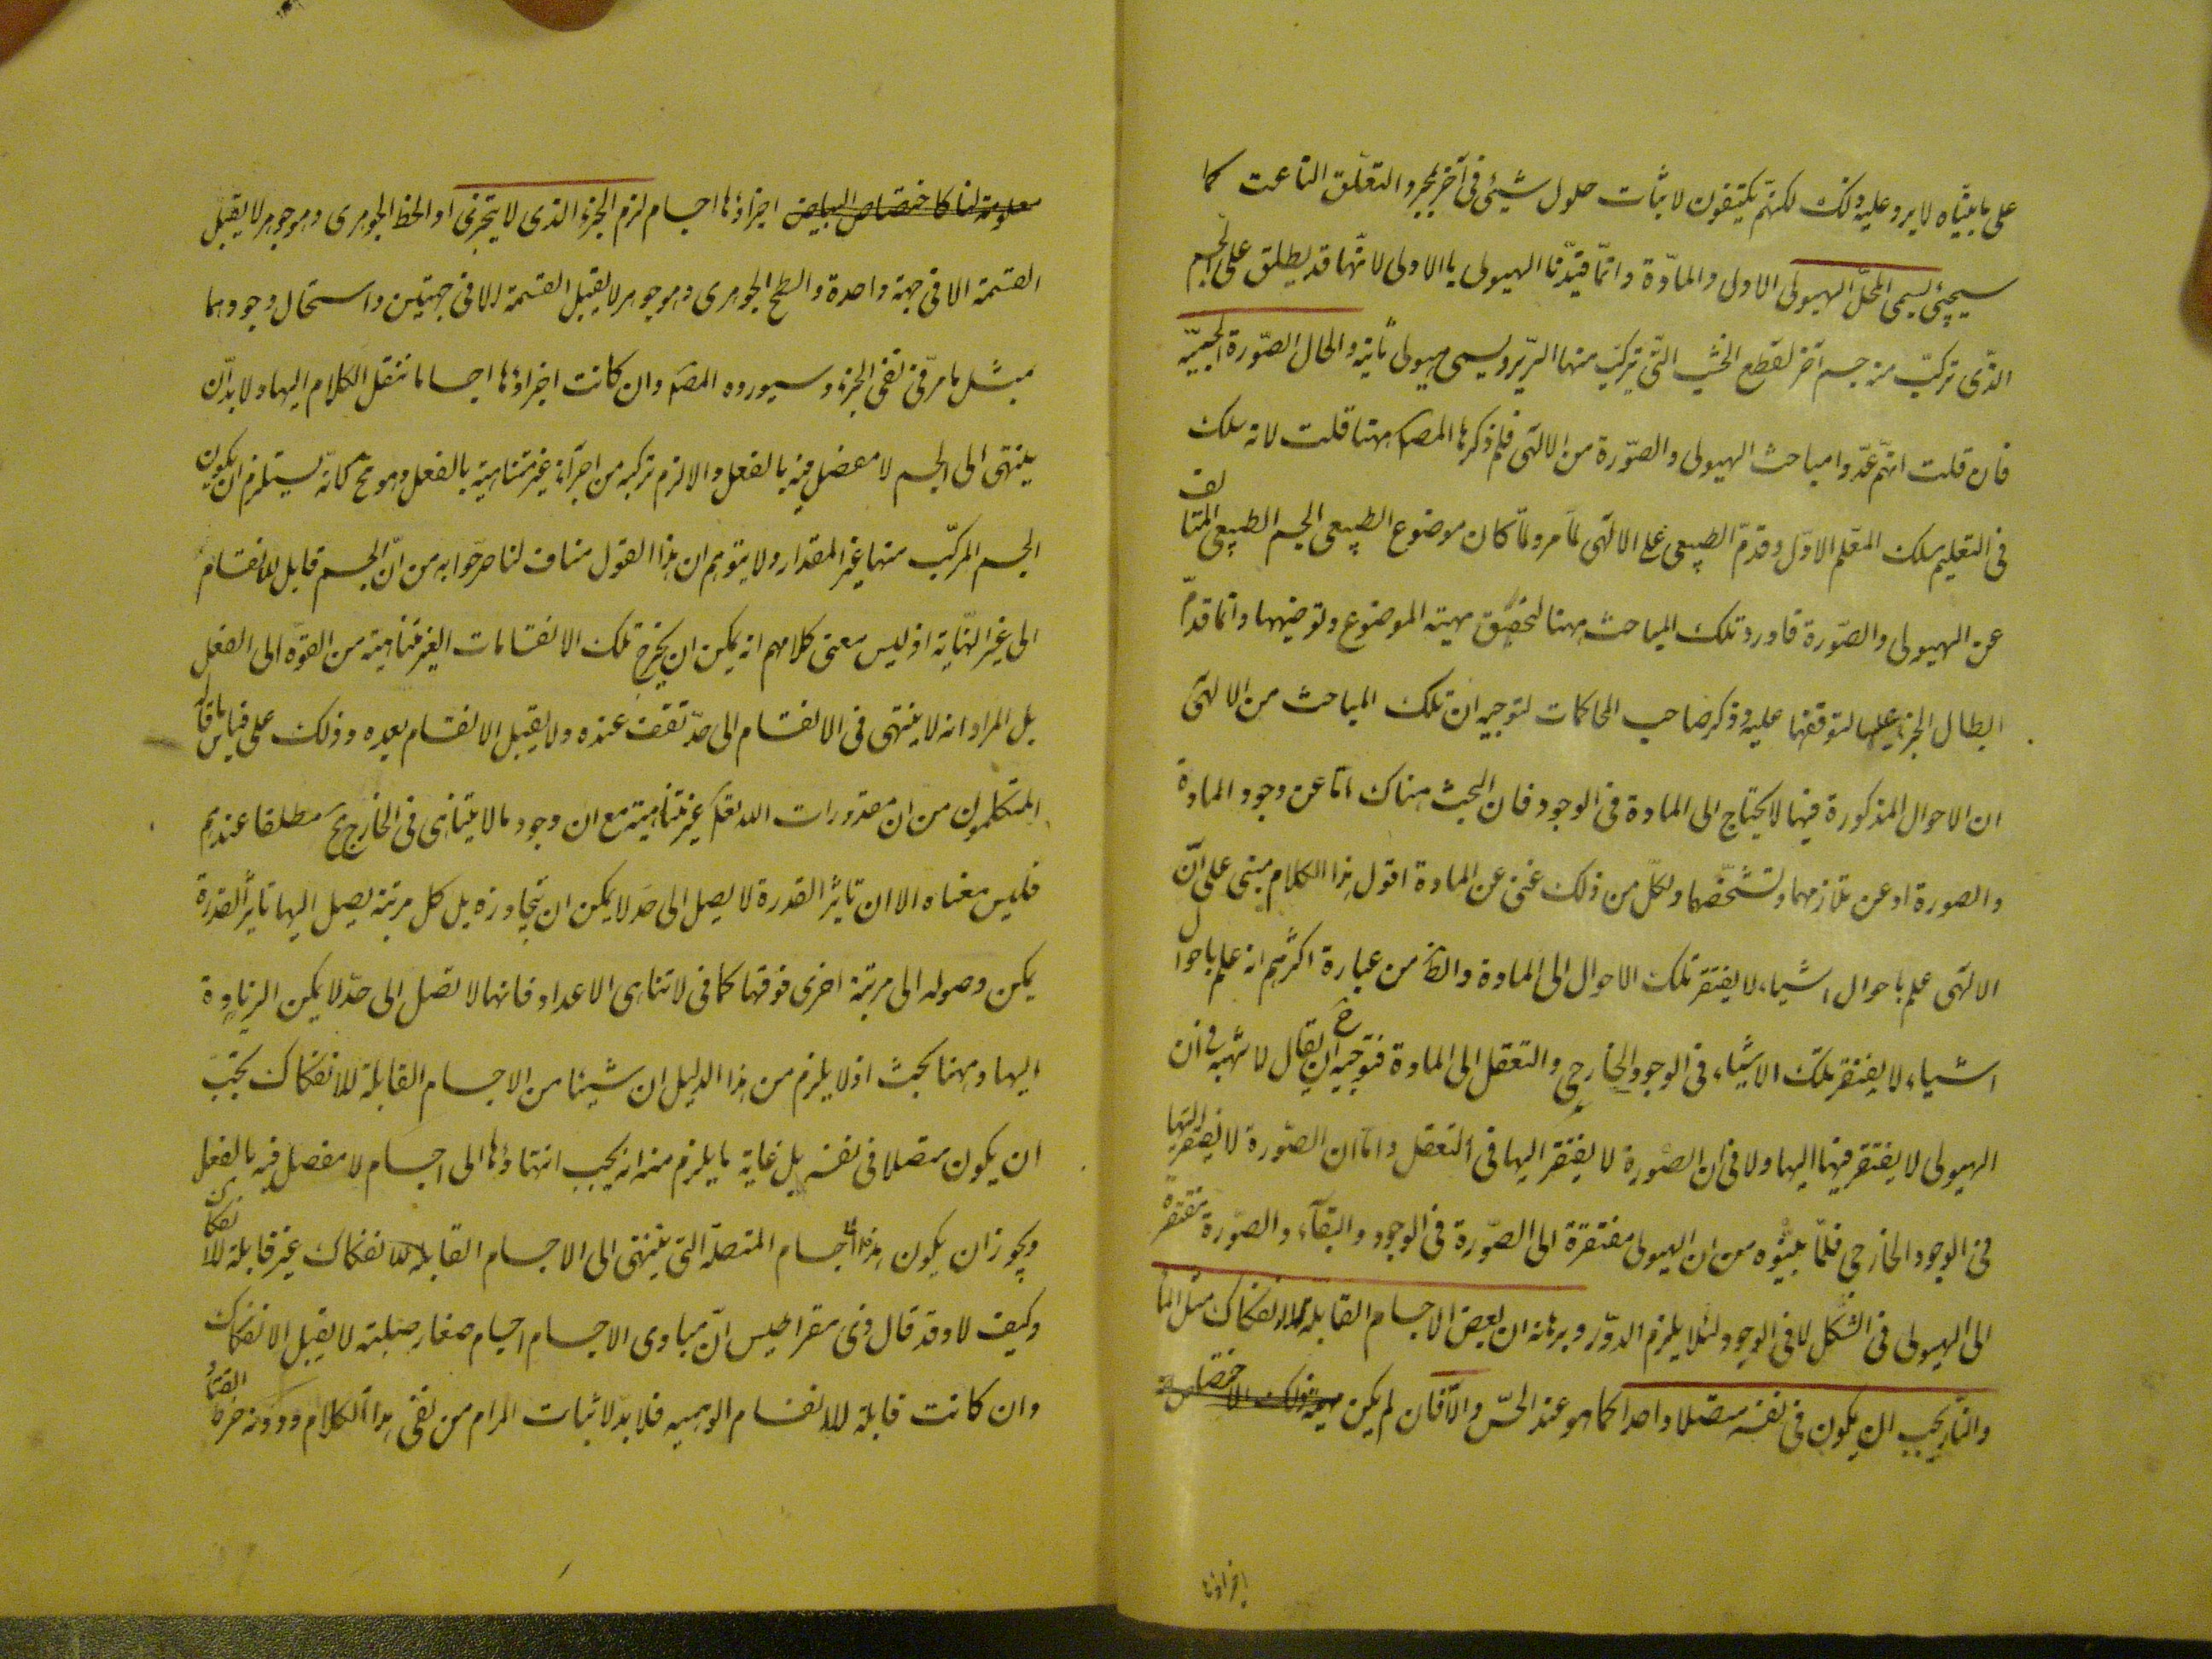 على ما بيناه لا يرد عليه ذلك لكنهم يكتفون لاثبات حلول شيئ فى آخر بمجرد التعلق الناعت كما
سيجيئ يسمى المحل الهيولى الاولى والمادة وانما قيدنا الهيولى بالاولى لانها قد يطلق على الجسم
الذى تركب منه جسم آخر لقطع الخشب التى تركب منها السرير ويسمى هيولى ثانية والحال الصورة الجسمية
فان قلت انهم عدوا مباحث الهيولى والصورة من الالهى فلم ذكرها المصـ ههنا قلت لانه سلك
فى التعليم مسلك المعلم الاول وقدم الطبيعى على الالهى لما مر ولما كان موضوع الطبيعى الجسم الطبيعى المتالف
عن الهيولى والصورة فاورد تلك المباحث ههنا لتحقيق مهية الموضوع وتوضيحها وانما قدم
ابطال الجزء عليها لتوقفها عليه وذكر صاحب المحاكمات لتوجيه ان تلك المباحث من الالهى
ان الاحوال المذكورة فيها لا يحتاج الى المادة فى الوجود فان البحث هناك اما عن وجود المادة
والصورة او عن تلازمهما وتشخصهما ولكل من ذلك غنى عن المادة اقول هذا الكلام مبنى على ان
الالهى علم باحوال اشياء لا يفتقر تلك الاحوال الى المادة والظ من عبارة اكثرهم انه علم باحوال
اشياء لا يفتقر تلك الاشياء فى الوجود الخارجى والتعقل الى المادة فتوجيهه ح ان يقال لا شبهة فى ان
الهيولى لا يفتقر فيهما اليها ولا فى ان الصورة لا يفتقر اليها فى التعقل واما ان الصورة لا يفتقر اليها
فى الوجود الخارجى فلما بينوه من ان الهيولى مفتقرة الى الصورة فى الوجود والبقاء والصورة مفتقرة
الى الهيولى فى الشكل لا فى الوجود لئلا يلزم الدور وبرهانه ان بعض الاجسام القابلة للانفكاك مثل الماء
والنار يجب ان يكون فى نفسه متصلا واحدا كما هو عند الحس والا فان لم يكن مهية ذلك الاختصاص
اجزاؤها
معلومة لنا كاختصاص البياض اجزاؤها اجسام لزم الجزء الذى لا يتجزى او الخط الجوهرى وهو جوهر لا يقبل
القسمة الا فى جهة واحدة والسطح الجوهرى وهو جوهر لا يقبل القسمة الا فى جهتين واستحال وجودهما
بمثل ما مر فى نفى الجزء وسيورده المصـ وان كانت اجزاؤها اجساما ننقل الكلام اليها ولا بد ان
ينتهى الى الجسم لا مفصل فيه بالفعل والا لزم تركبه من اجزاء غير متناهية بالفعل وهو مح لانه يستلزم ان يكون
الجسم المركب منها غير المقدار ولا يتوهم ان هذا القول مناف لما صرحوا به من ان الجسم قابل للانقسام
الى غير النهاية اذ ليس معنى كلامهم انه يمكن ان يخرج تلك الانقسامات الغير المتناهية من القوة الى الفعل
بل المراد انه لا ينتهى فى الانقسام الى حد تقف عنده ولا يقبل الانقسام بعده وذلك على قياس ما قاله
المتكلمون من ان مقدورات الله تعـ غير متناهية مع ان وجود ما لا يتناهى فى الخارج مح مطلقا عندهم
فليس معناه الا ان تاثير القدرة لا يصل الى حد لا يمكن ان يتجاوزه بل كل مرتبة يصل اليها تاثير القدرة
يمكن وصوله الى مرتبة اخرى فوقها كما فى لا تناهى الاعداد فانها لا تصل الى حد لا يمكن الزيادة
اليها وههنا بحث اذ لا يلزم من هذا الدليل ان شيئا من الاجسام القابلة للانفكاك يجب
ان يكون متصلا فى نفسه بل غاية ما يلزم منه انه يجب انتهاؤها الى اجسام لا مفصل فيه بالفعل
ويجوز ان يكون هذه الاجسام المتصلة التى ينتهى الى الاجسام القابلة للانفكاك غير قابلة للانفكاك
وكيف لا وقد قال ذى مقراطيس ان مبادى الاجسام اجسام صغار صلبة لا يقبل الانفكاك
وان كانت قابلة للانقسام الوهمية فلا بد لاثبات المرام من نفى هذا الكلام ودونه خرط القتاد